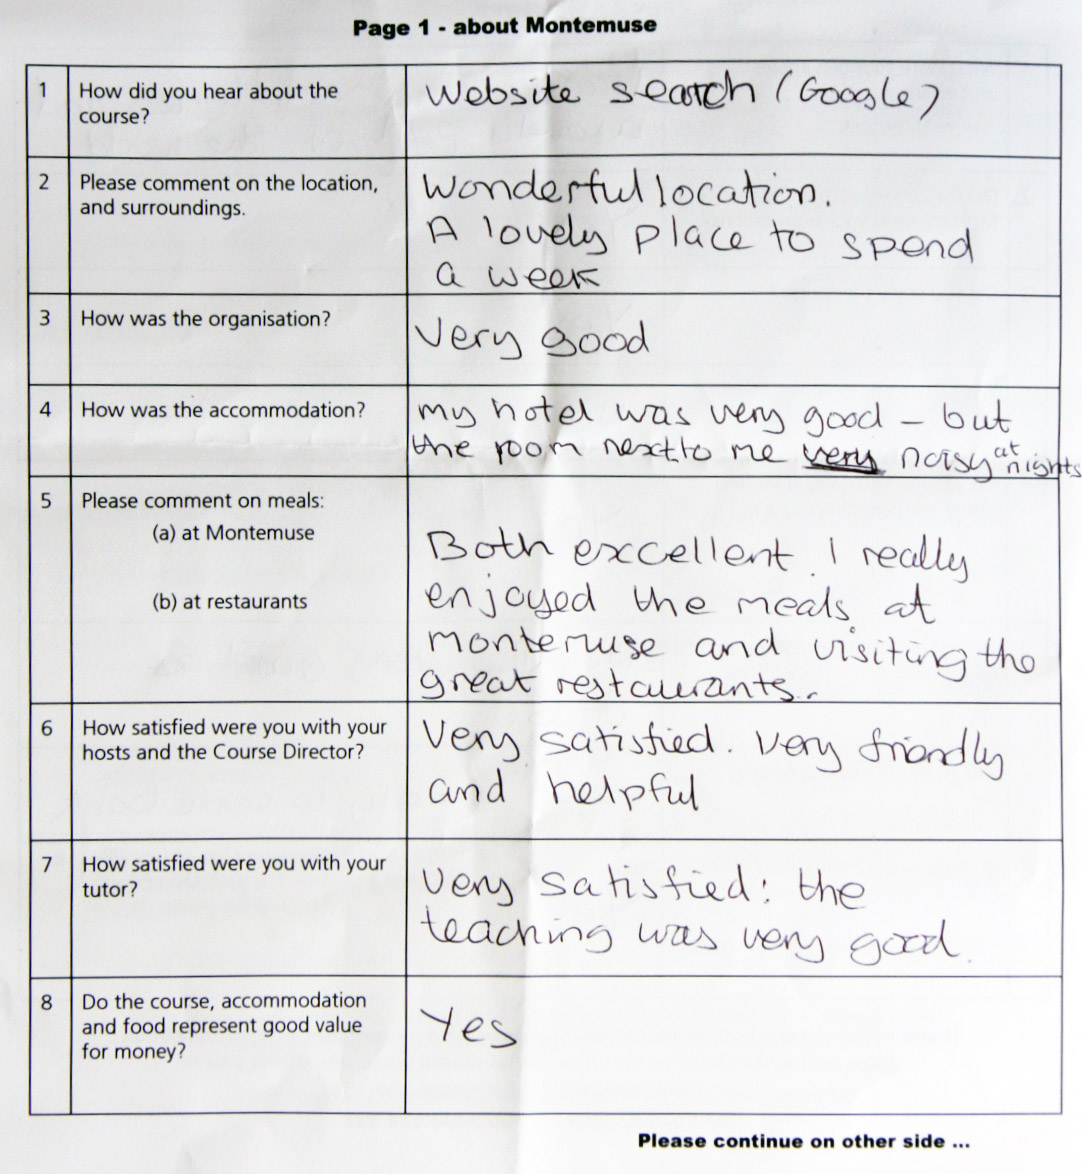 Page 1 - about Montemuse
1 How did you hear about the course? Website search (Google)
2 Please comment on the location, and surroundings. Wonderful location.
A lovely place to spend
a week
3 How was the organisation? Very good
4 How was the accommodation? my hotel was very good – but
the room next to me very noisy at nights
5 Please comment on meals:
(a) at Montemuse
(b) at restaurants
Both excellent. I really
enjoyed the meals at
montemuse and visiting the
great restaurants.
6 How satisfied were you with your hosts and the Course Director? Very satisfied. Very friendly
and helpful
7 How satisfied were you with your tutor? Very satisfied: the
teaching was very good.
8 Do the course, accommodation and food represent good value for money? Yes
Please continue on other side ...